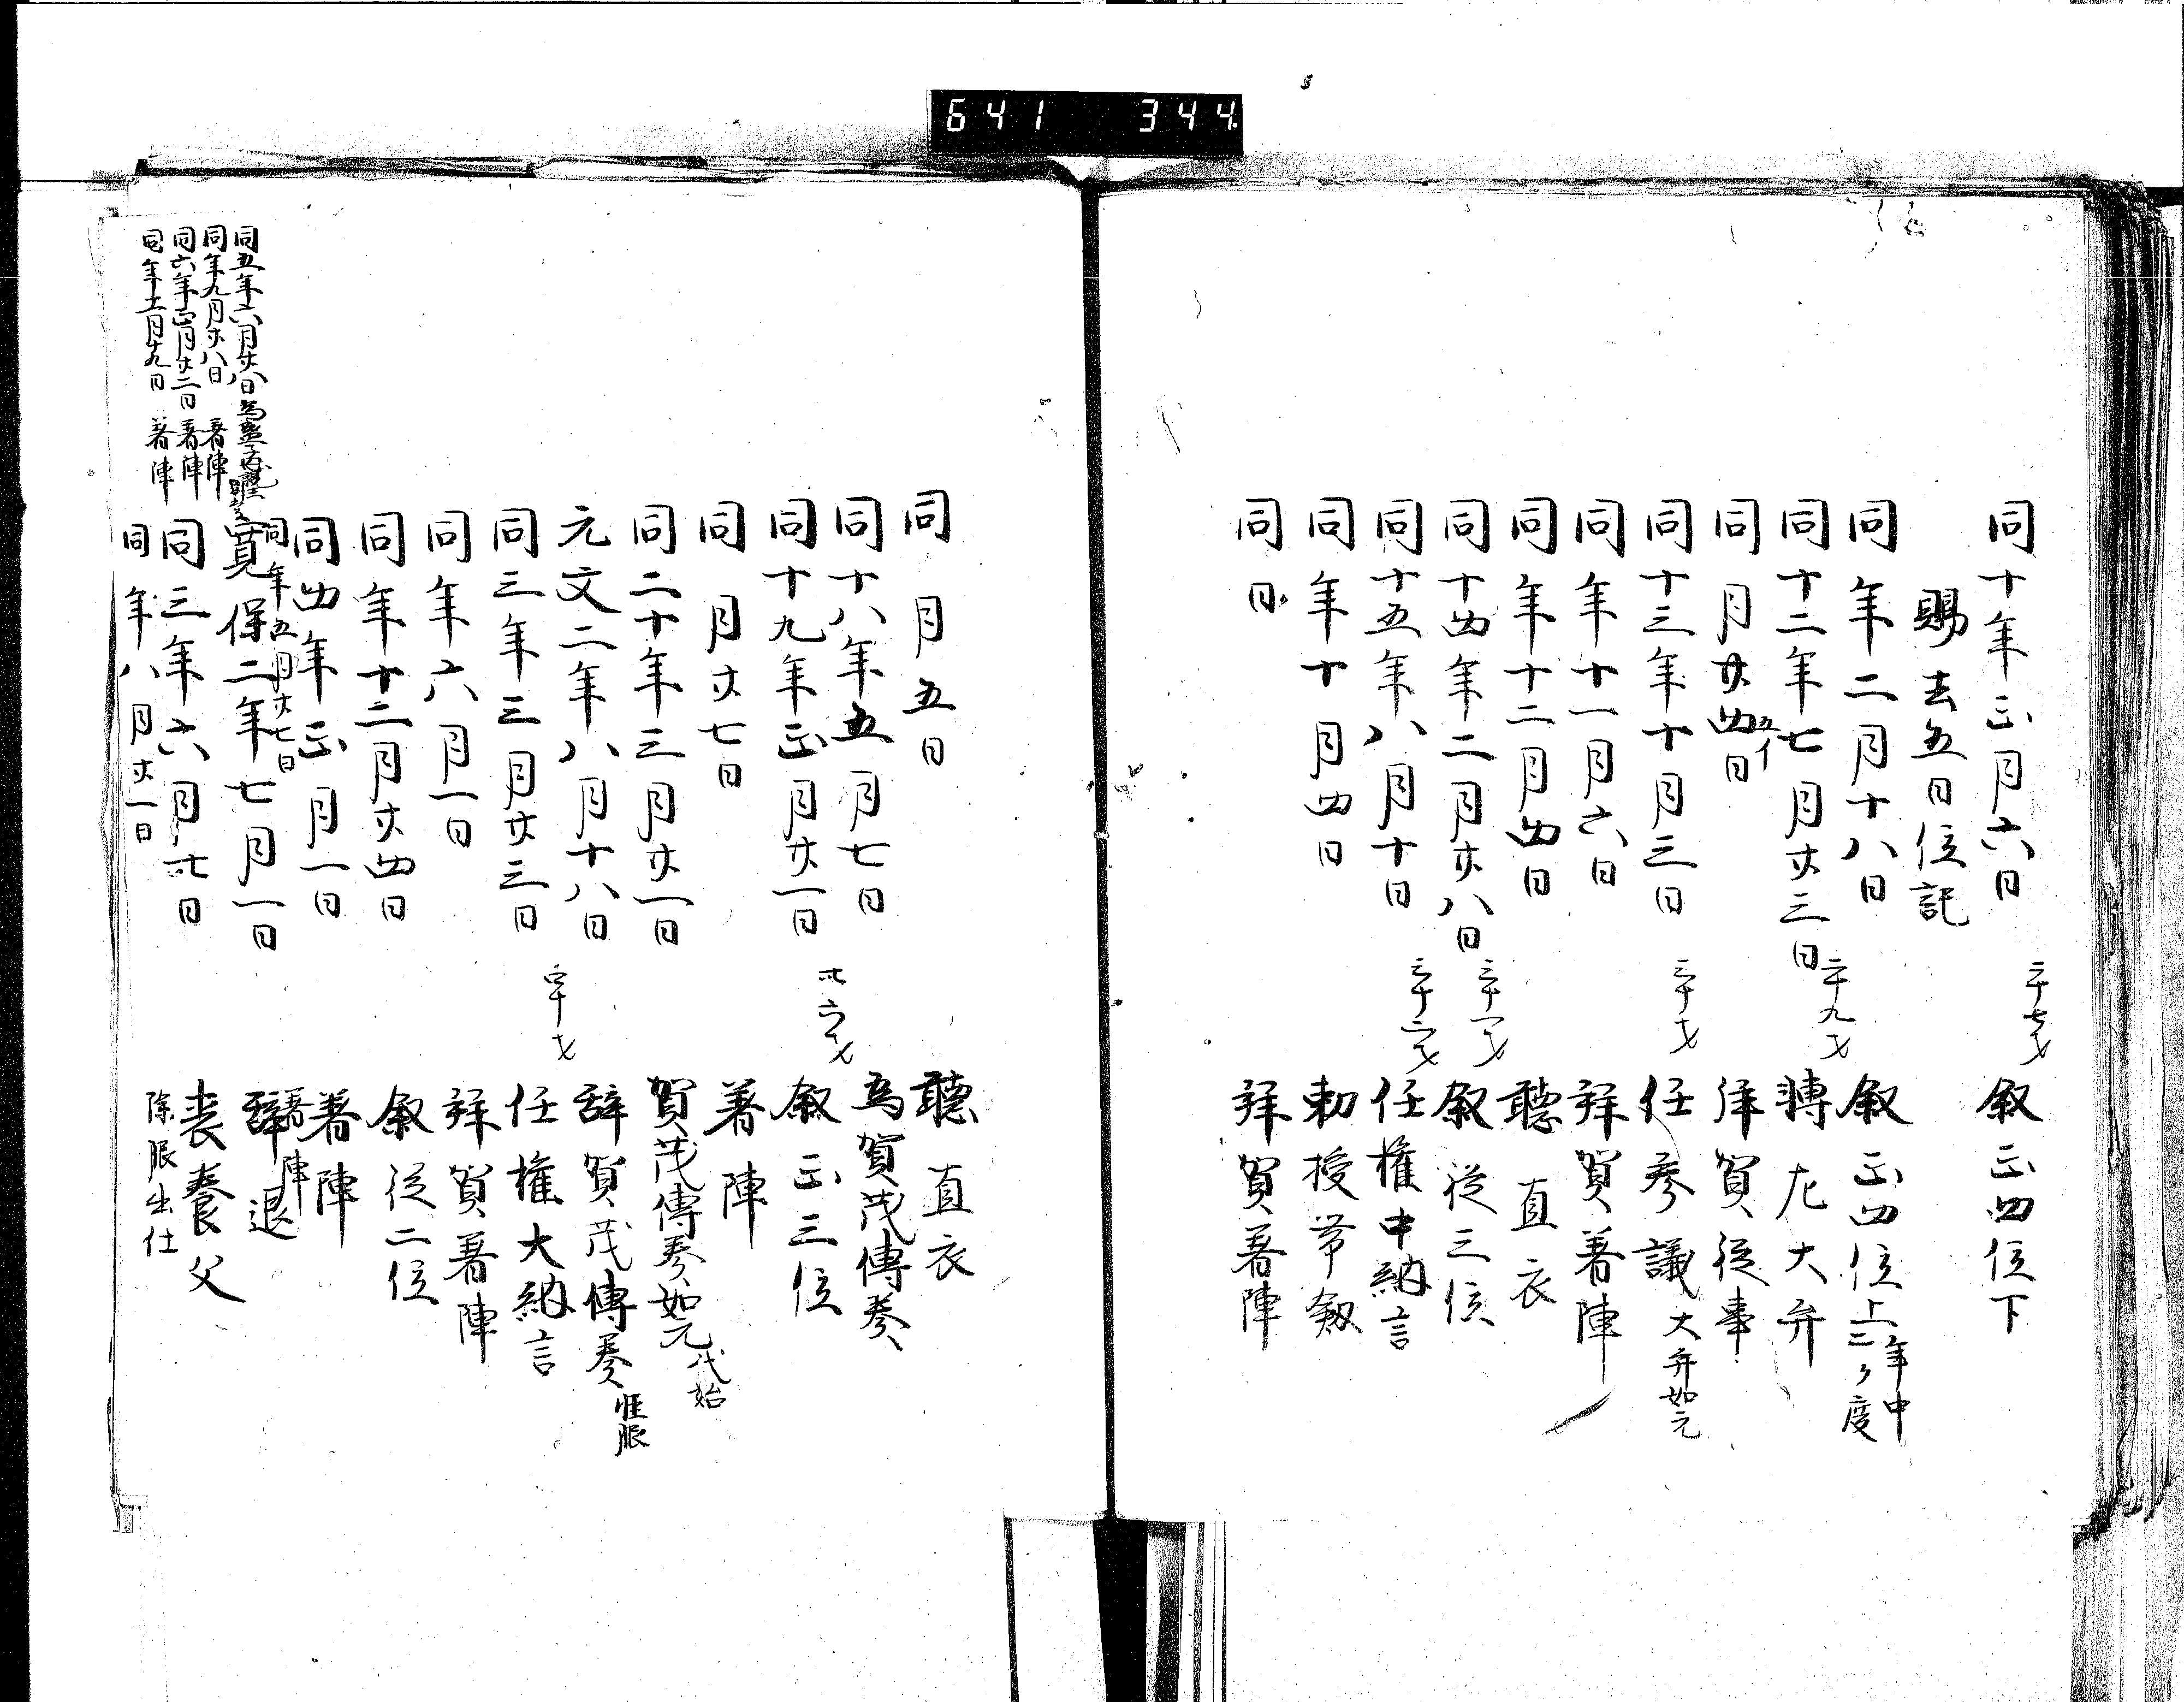 641 344.
同十年正月六日 二十七才 叙正四位下
賜去五日位記
同年二月十八日 叙正四位上 年中三ヶ度
同十二年七月廿三日 二十九才 轉左大弁
同月廿四日 拜賀従事
同十三年十月三日 三十才 任参議 大弁如元
同年十一月六日 拜賀著陣
同年十二月四日 聴直衣
同十四年二月廿八日 三十一才 叙従三位
同十五年八月十日 三十二才 任権中納言
同年十月四日 勅授帯劔
同日 拜賀著陣
同月五日 聴直衣
同十八年五月七日 為賀茂傳奏
同十九年正月廿一日 卅六才 叙正三位
同月廿七日 著陣
同二十年三月廿一日 賀茂傳奏如元 代始
元文二年八月十八日 辞賀茂傳奏 惟服
同三年三月廿三日 四十才 任権大納言
同年六月一日 拜賀著陣
同年十二月廿四日 叙従二位
同四年正月一日 著陣
同年五月廿七日 著陣
同五年六月廿八日
同年九月廿八日 著陣
同六年正月廿二日 著陣
同年十一月十九日 著陣
寛保二年七月一日 辞退
同三年六月七日 喪養父
同年八月廿一日 除服出仕